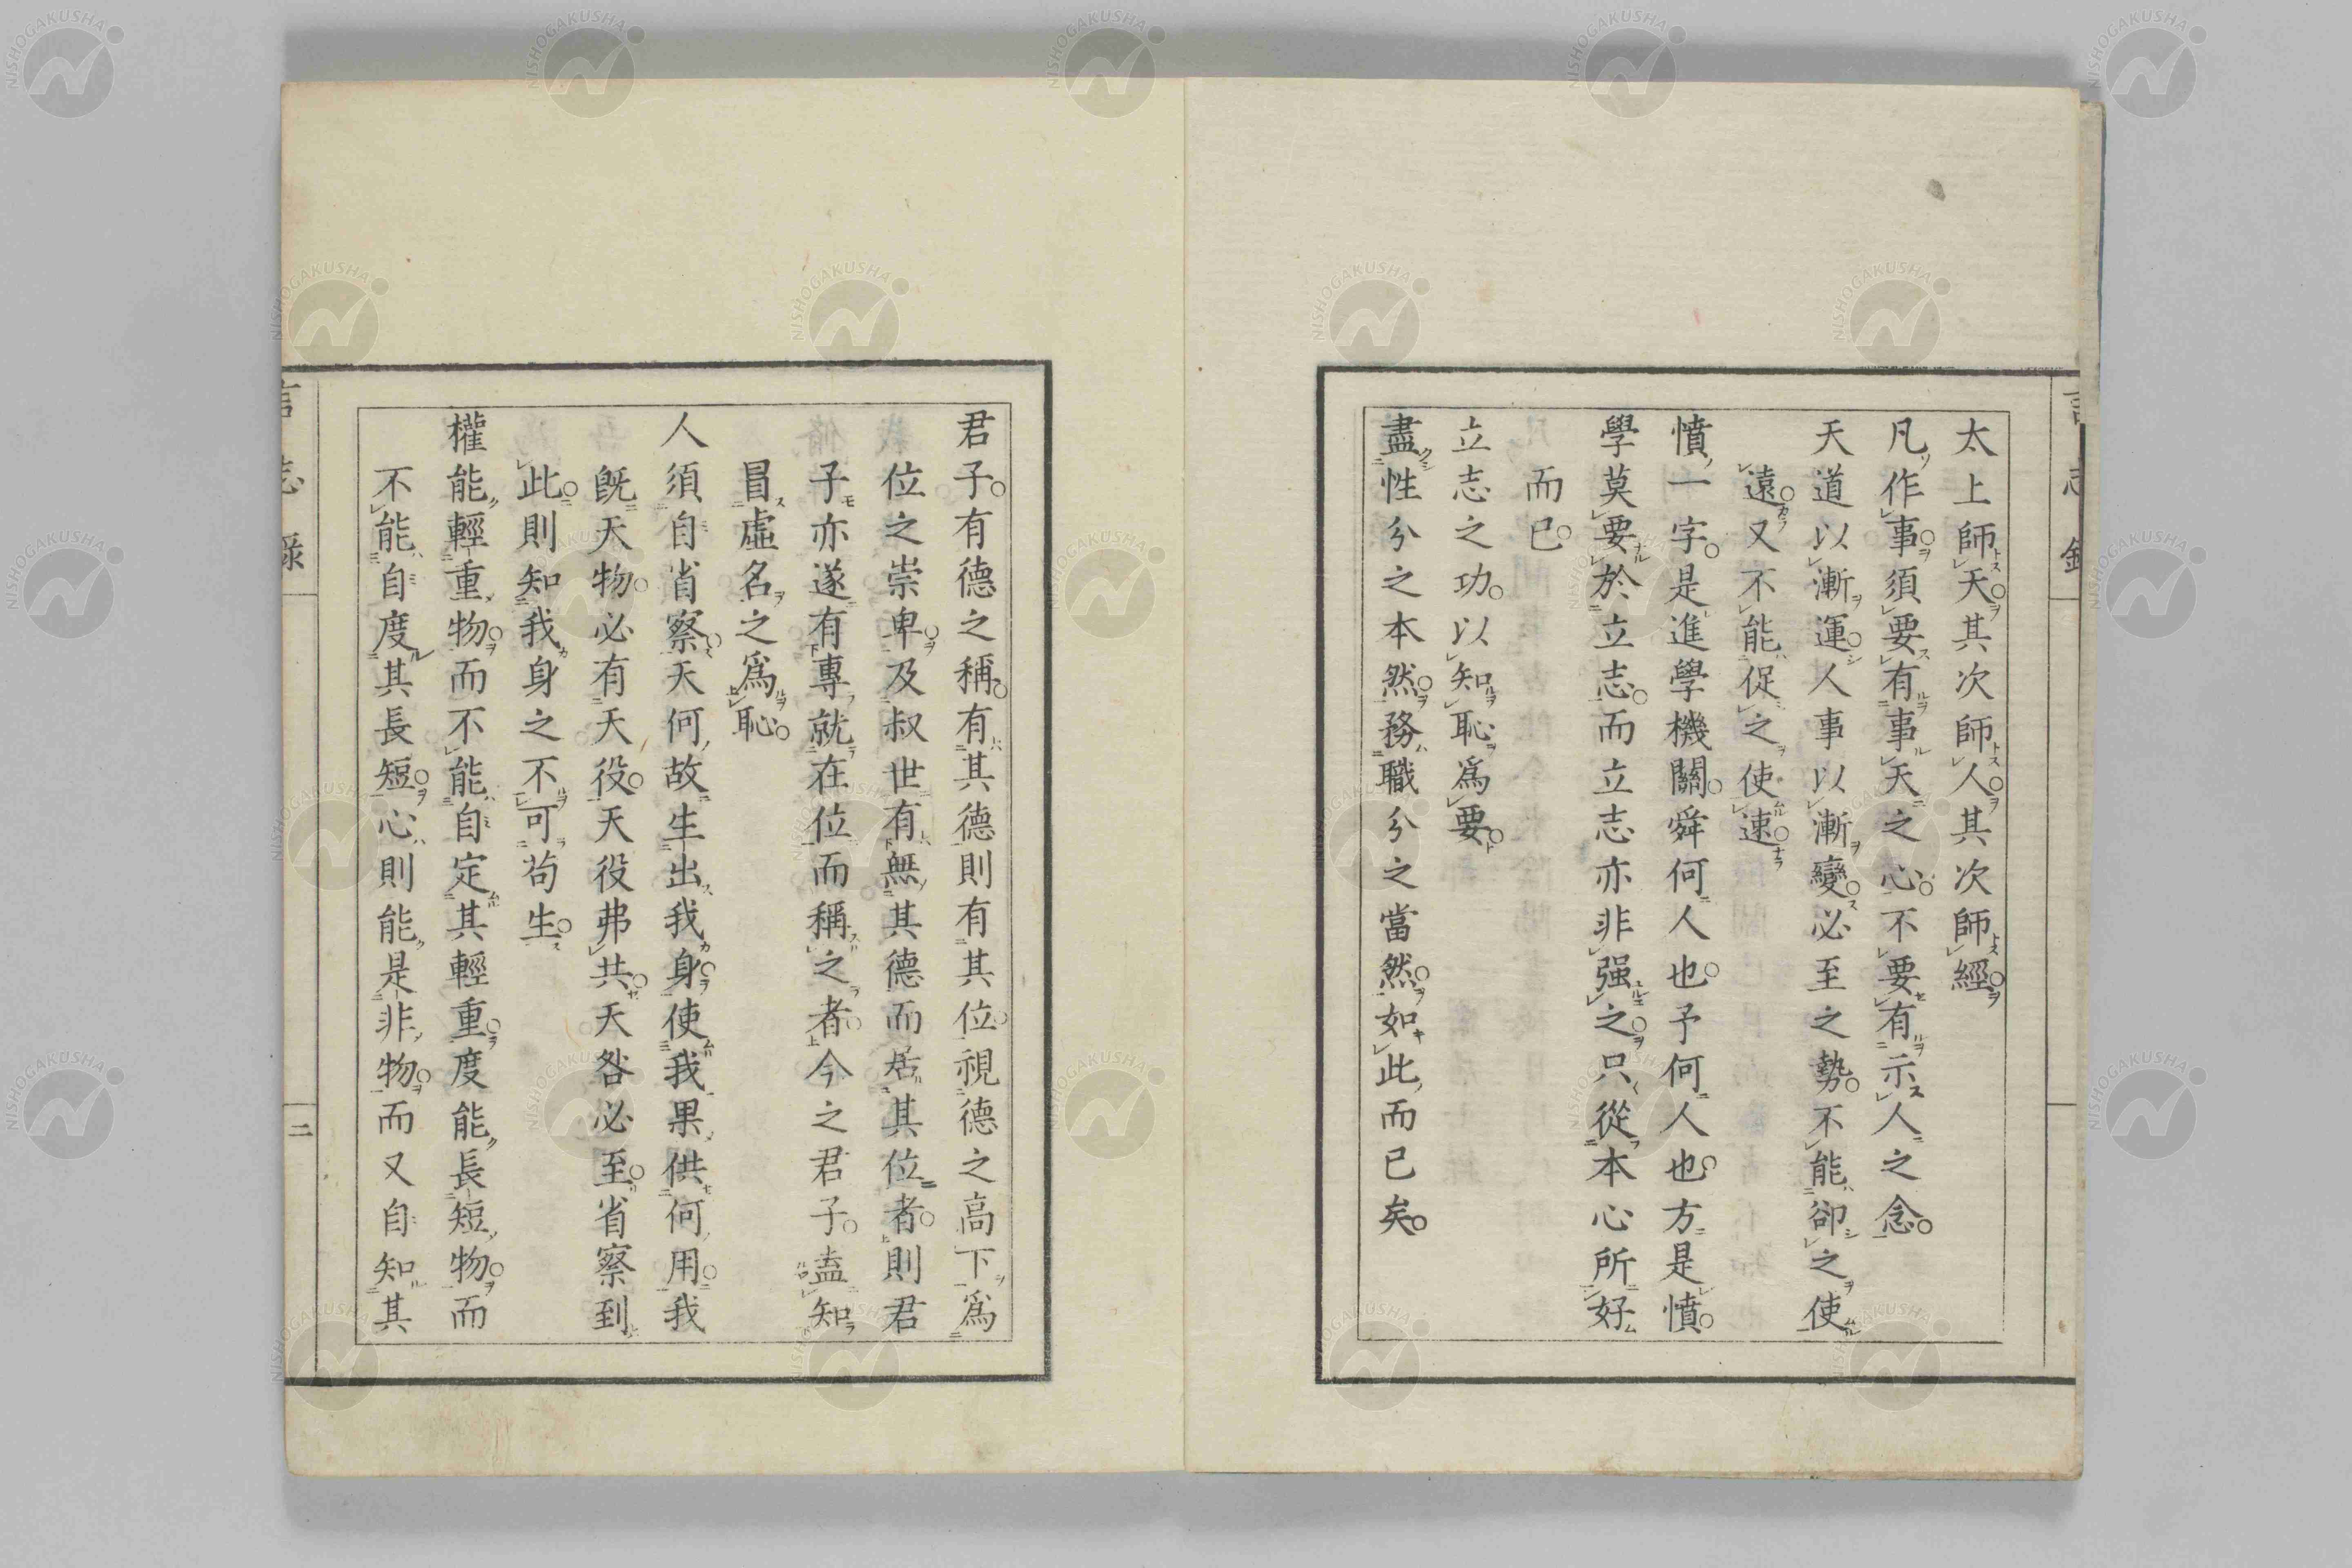 太上師天其次師人其次師經
凡作事須要有事天之心不要有示人之念
天道以漸運人事以漸變必至之勢不能卻之使
遠又不能促之使速
憤一字是進學機關舜何人也予何人也方是憤
學莫要於立志而立志亦非强之只從本心所好
而已
立志之功以知恥爲要
盡性分之本然務職分之當然如此而已矣
君子有德之稱有其德則有其位視德之高下爲
位之崇卑及叔世有無其德而居其位者則君
子亦遂有專就在位而稱之者今之君子盍知
冒虛名之爲恥
人須自省察天何故生出我身使我果供何用我
既天物必有天役天役弗共天咎必至省察到
此則知我身之不可苟生
權能輕重物而不能自定其輕重度能長短物而
不能自度其長短心則能是非物而又自知其
言志錄
二
NISHOGAKUSHA